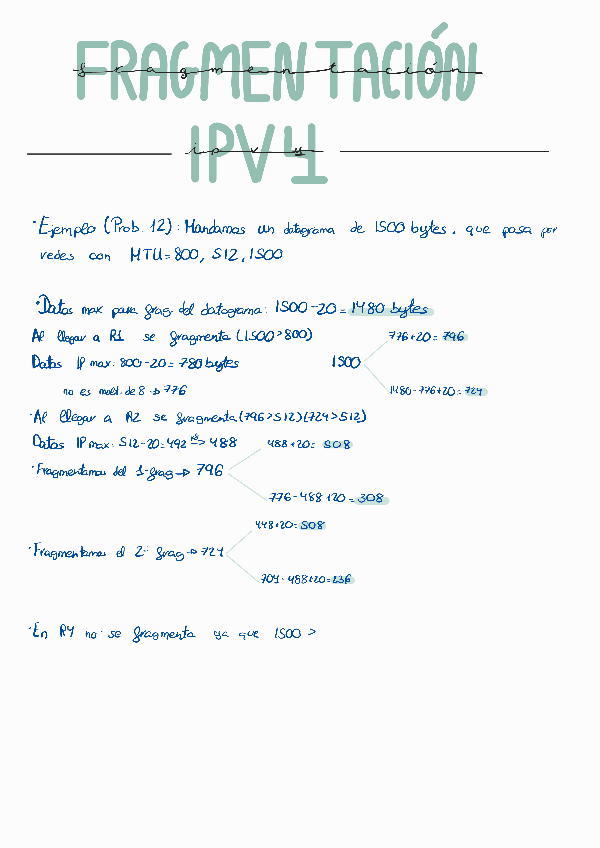 FRAGMENTACIÓN
fragmentación
IPV4
ipv4
·Ejemplo (Prob. 12): Mandamos un datagrama de 1500 bytes, que pasa por
redes con MTU=800, 512, 1500
·Datos max para frag del datograma: 1500-20=1480 bytes
Al llegar a R1 se fragmenta (1500>800)
776+20=796
Datos IP max: 800-20=780 bytes
1500
no es mult. de 8 → 776
1480-776+20=724
·Al llegar a R2 se fragmenta (796>512)(724>512)
Datos IP max: 512-20=492 => 488
488+20= 508
·Fragmentamos del 1º frag → 796
776-488+20=308
448+20=508
·Fragmentamos el 2º frag → 724
704-488+20=236
·En R4 no se fragmenta ya que 1500 >